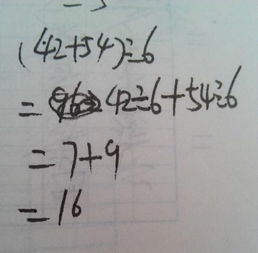 (42+54)÷6
= 42÷6+54÷6
= 7+9
= 16